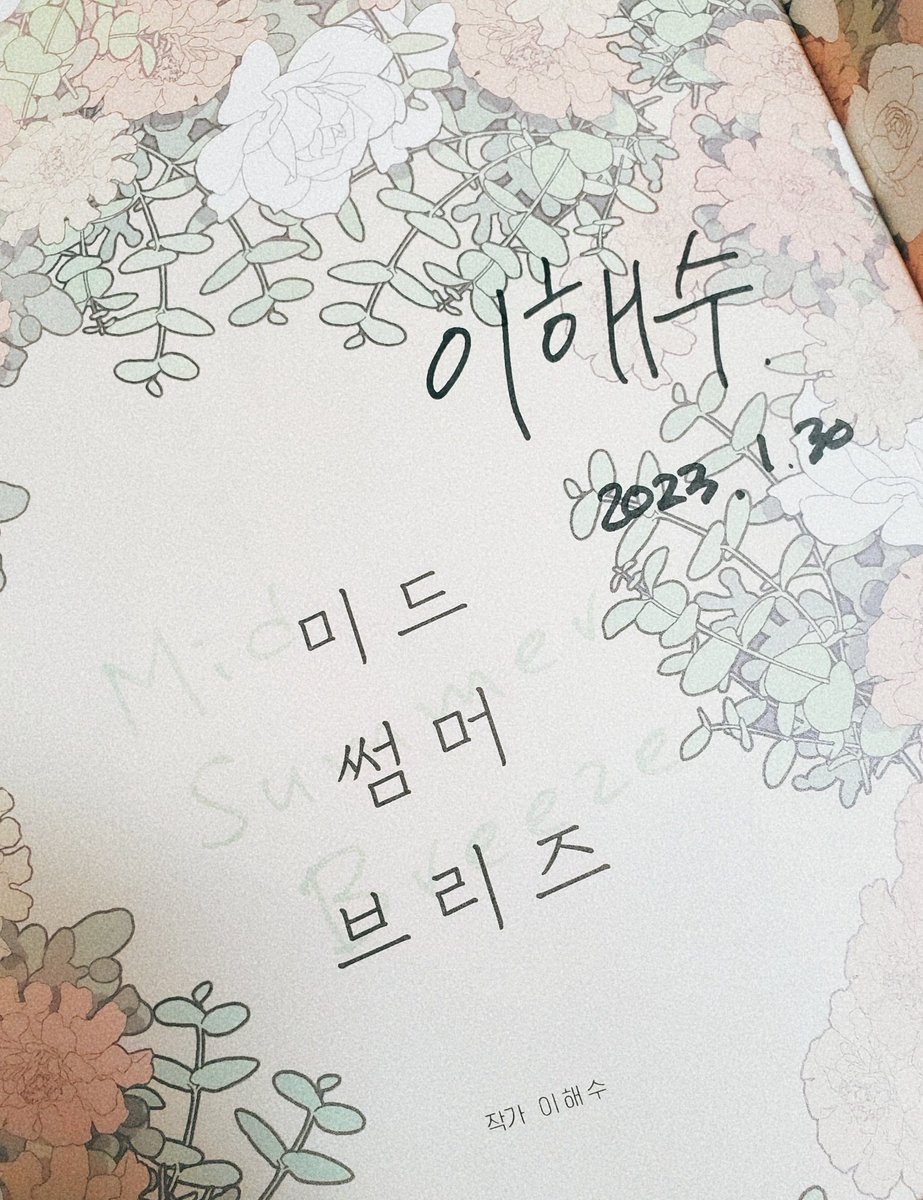 이해수.
2023.1.30
미드
Mid
Summer
썸머
Breeze
브리즈
작가 이해수